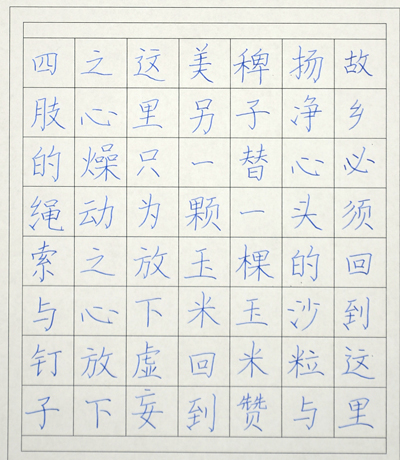 故乡必须回到这里
扬净心头的沙粒与
稗子替一棵玉米赞
美另一颗玉米回到
这里只为放下虚妄
之心燥动之心放下
四肢的绳索与钉子